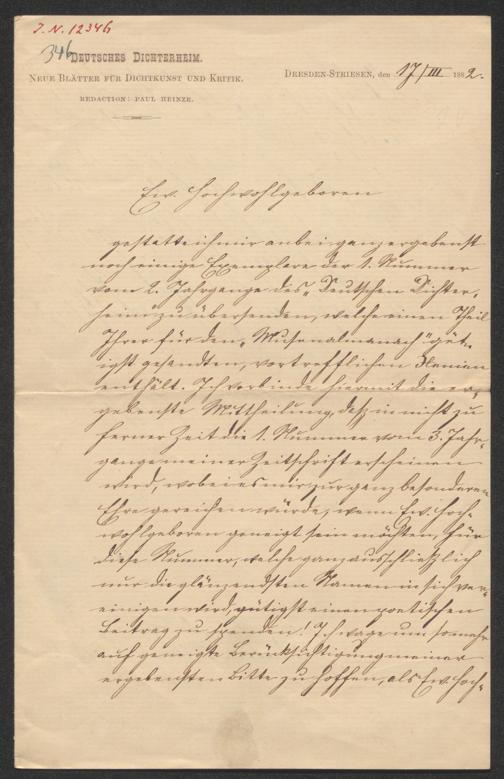 J. N. 12346
346
DEUTSCHES DICHTERHEIM.
NEUE BLÄTTER FÜR DICHTKUNST UND KRITIK.
REDACTION: PAUL HEINZE.
DRESDEN-STRIESEN, den 17/III 1882.
Ew. Hochwohlgeboren
gestatte ich mir anbei ganz ergebenst
noch einige Exemplare der 1. Nummer
vom 2. Jahrgange des „Deutschen Dichter-
heim" zu übersenden, welche einen Theil
Ihrer für den „Musenalmanach" güt-
igst gesandten, vortrefflichen
enthält. Ich verbinde hiermit die er-
gebenste Mittheilung, daß in nicht zu
ferner Zeit die 1. Nummer vom 3. Jahr-
gange meiner Zeitschrift erscheinen
wird, wobei es mir zur ganz besonderen
Ehre gereichen würde, wenn Ew. Hoch-
wohlgeboren geneigt sein möchten, für
diese Nummer, welche ganz ausschließlich
nur die glänzendsten Namen in sich ver-
einigen wird, gütigst einen poetischen
Beitrag zu spenden! Ich wage um so mehr
auf geneigte Berücksichtigung meiner
ergebensten Bitte zu hoffen, als Ew. Hoch-